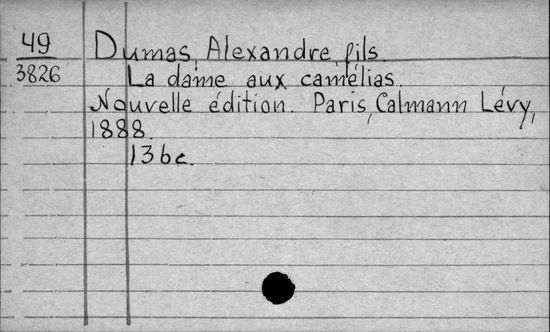 49
3826
Dumas, Alexandre fils.
La dame aux camélias.
Nouvelle édition. Paris, Calmann Lévy,
1888.
136c.